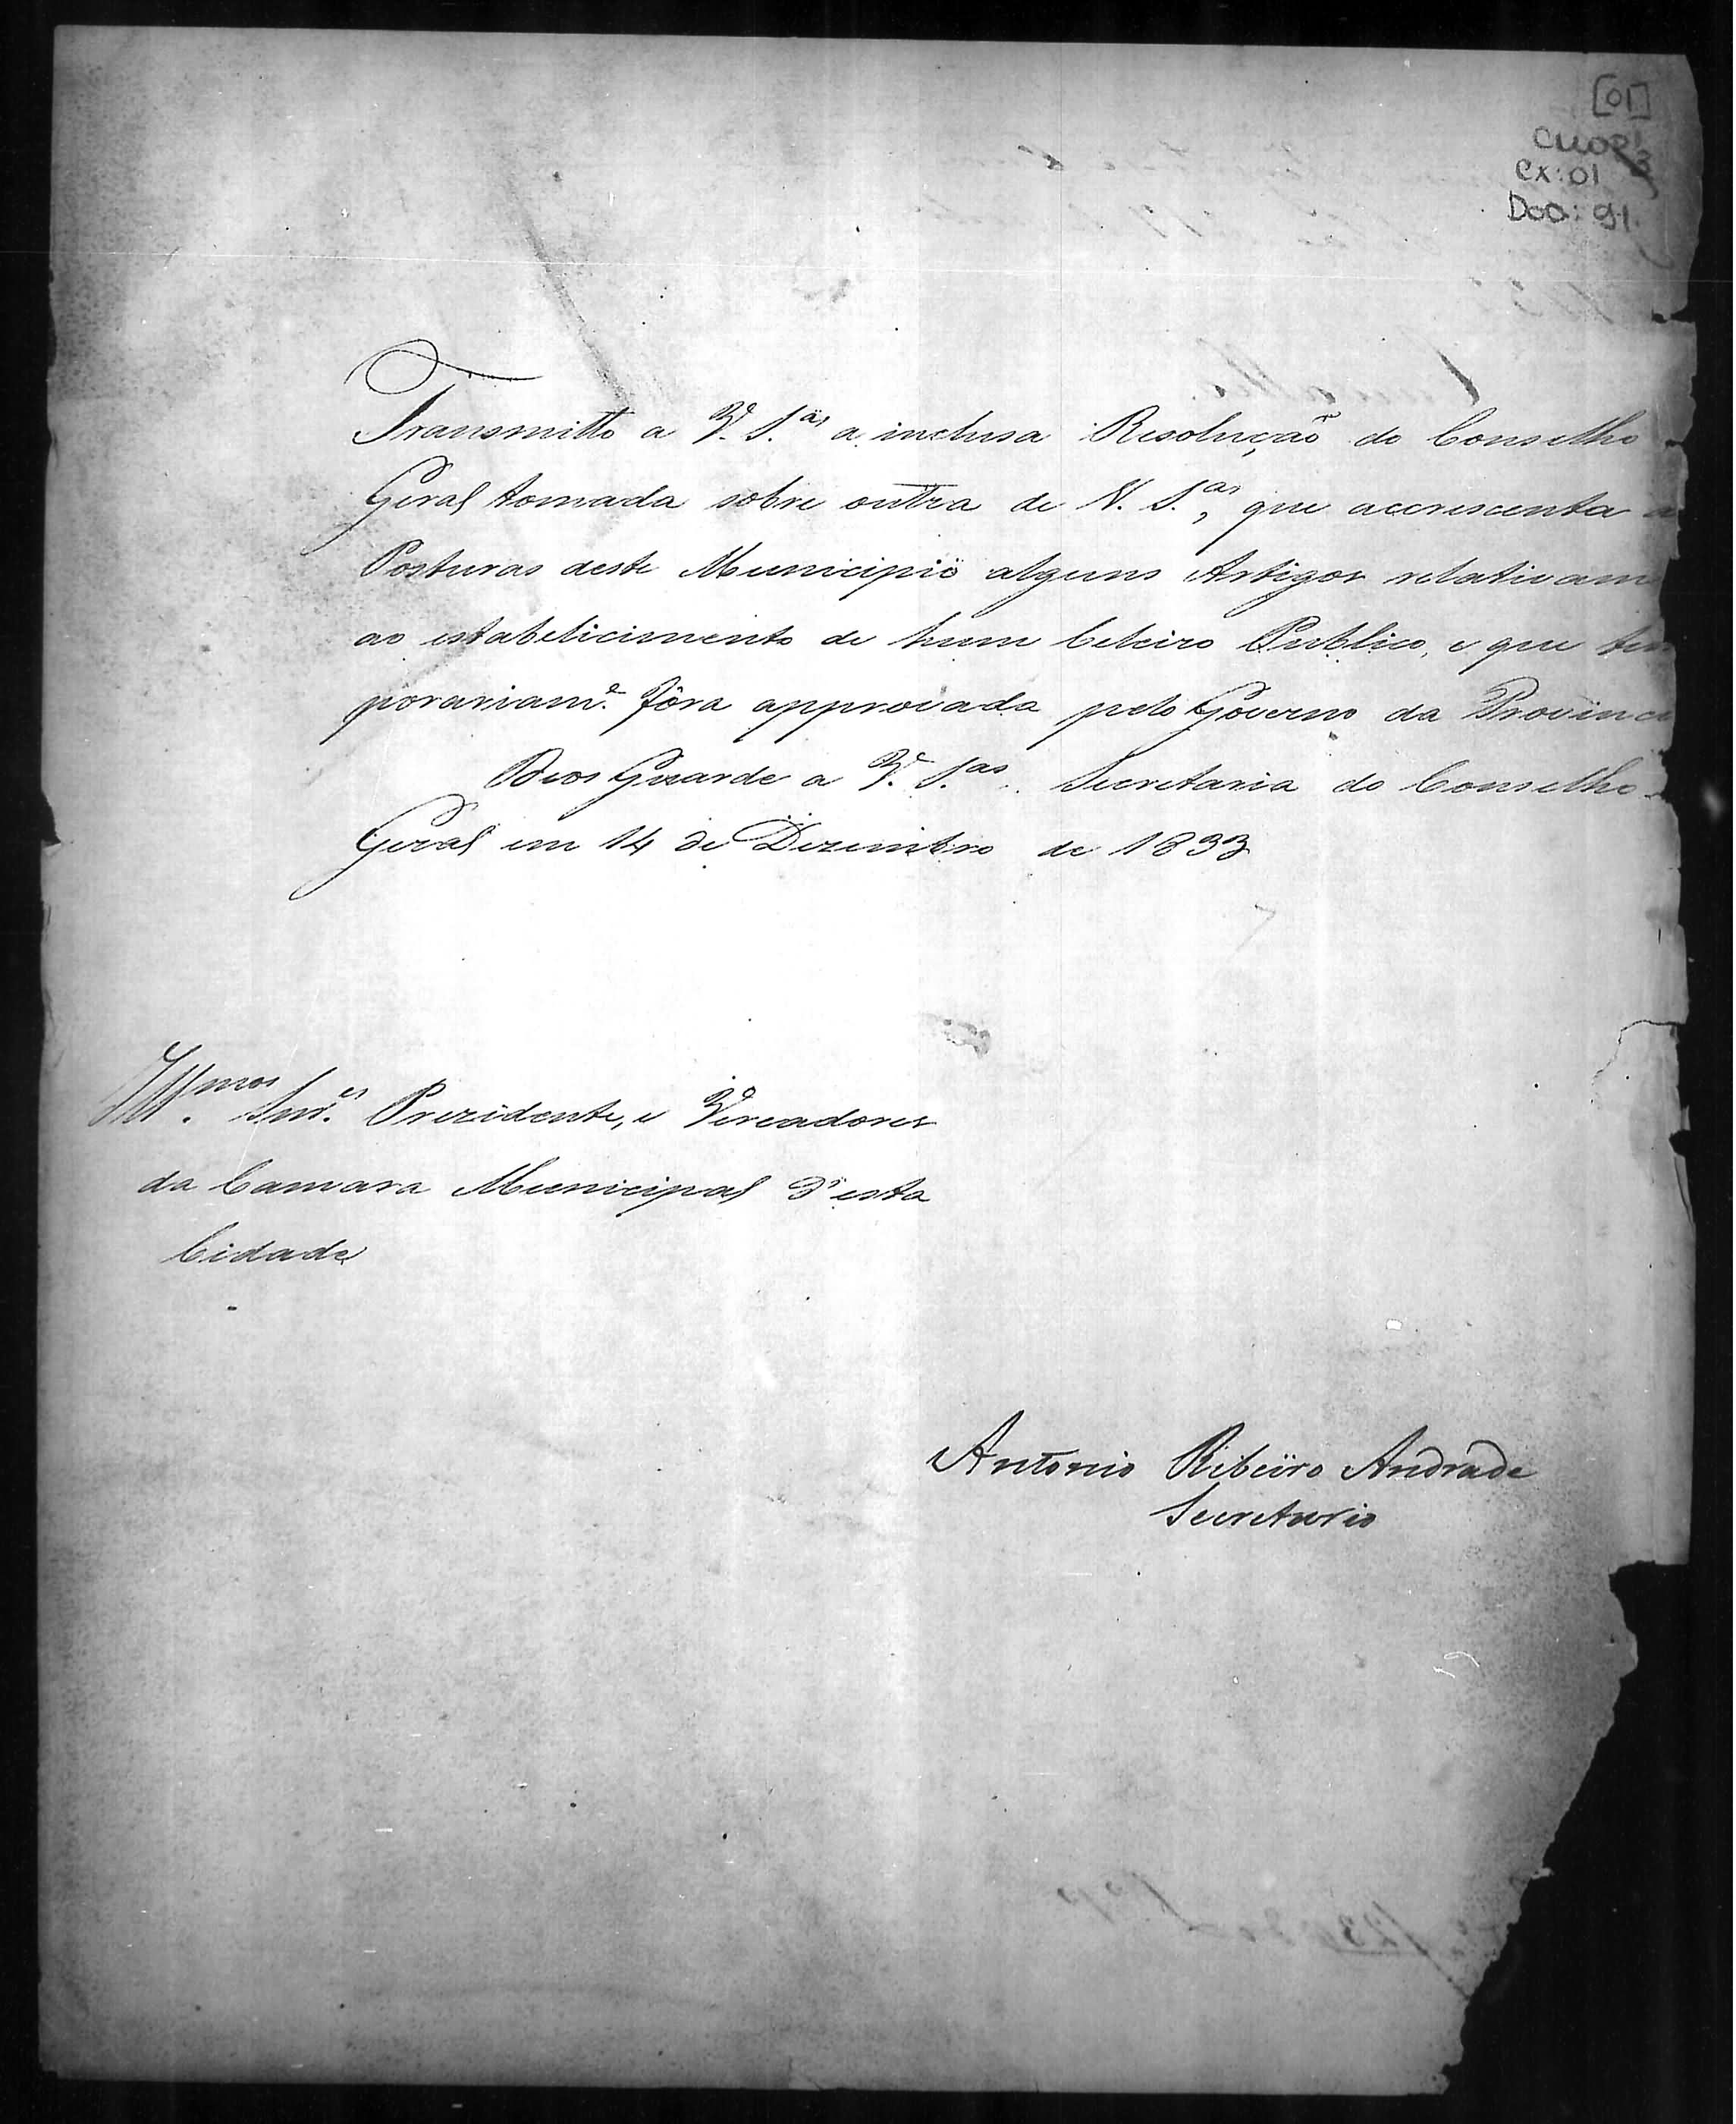 [01]
Cx: 01
Doc: 91.
Transmitto a V. S.as a inclusa Resolução do Conselho
Geral tomada sobre outra de V. S.as, que accrescenta a
Posturas deste Municipio alguns Artigos relativam
ao estabelicimento de hum Celeiro Publico, e que tem
porariam.e fôra approvada pelo Governo da Provinci
Deos Guarde a V. S.as. Secretaria do Conselho
Geral em 14 de Dezembro de 1833
Ill.mos Snr.es Prezidente, e Vereadores
da Camara Municipal d'esta
Cidade
Antonio Ribeiro Andrade
Secretario